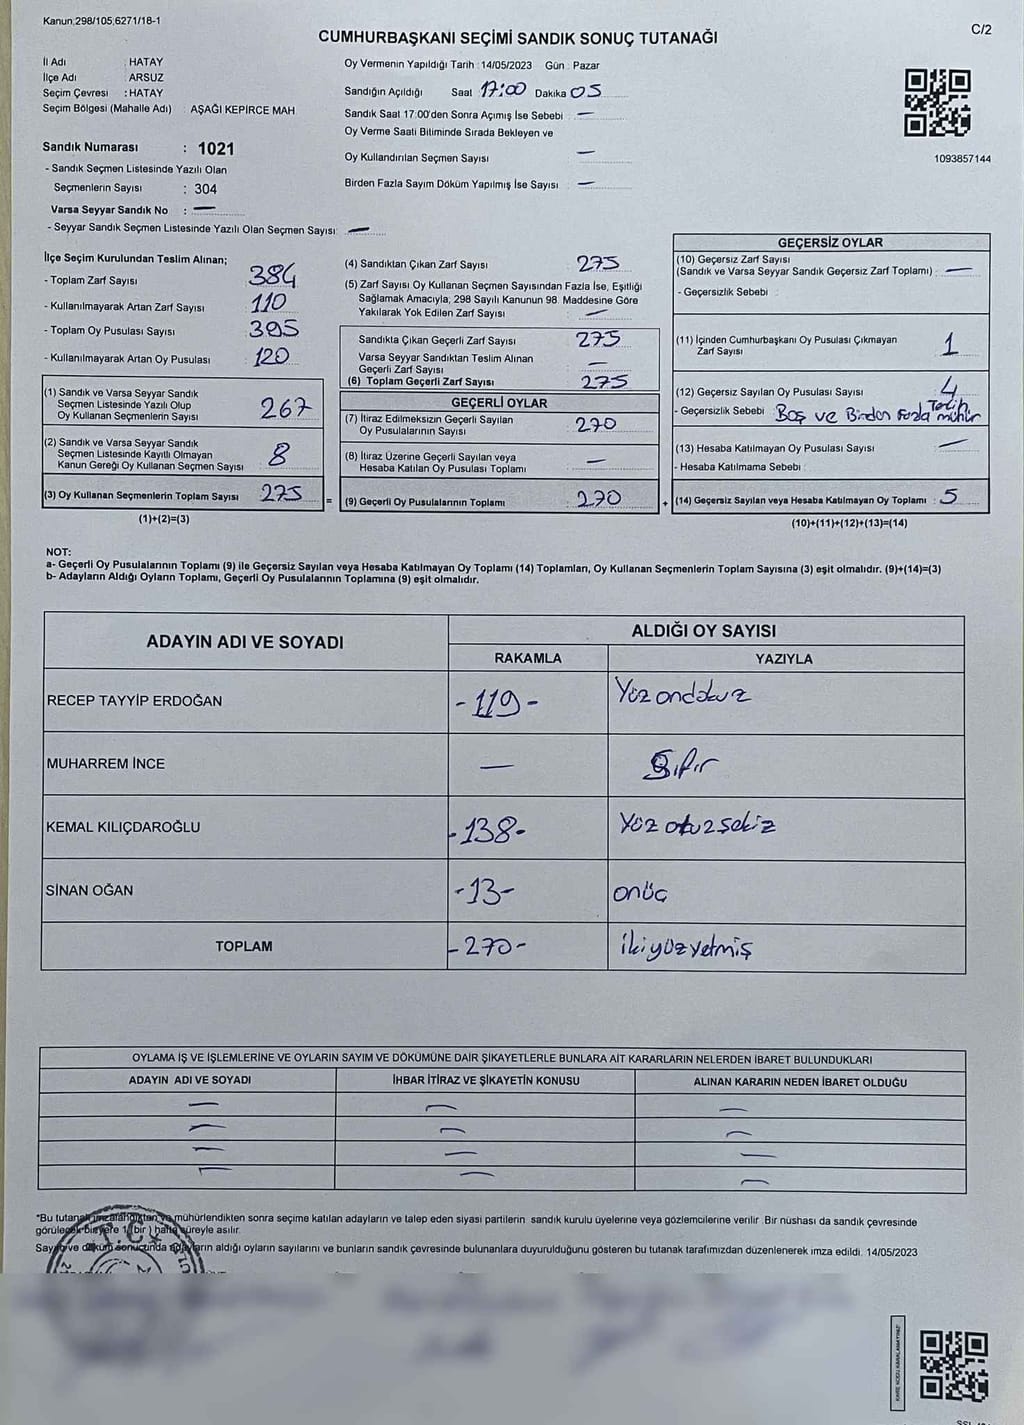 Kanun,298/105,6271/18-1
C/2
CUMHURBAŞKANI SEÇİMİ SANDIK SONUÇ TUTANAĞI
İl Adı : HATAY
İlçe Adı : ARSUZ
Seçim Çevresi : HATAY
Seçim Bölgesi (Mahalle Adı) : AŞAĞI KEPİRCE MAH
Sandık Numarası : 1021
- Sandık Seçmen Listesinde Yazılı Olan
Seçmenlerin Sayısı : 304
Varsa Seyyar Sandık No : —
- Seyyar Sandık Seçmen Listesinde Yazılı Olan Seçmen Sayısı: —
Oy Vermenin Yapıldığı Tarih : 14/05/2023 Gün : Pazar
Sandığın Açıldığı Saat 17:00 Dakika 05
Sandık Saat 17:00'den Sonra Açımış İse Sebebi : —
Oy Verme Saati Bitiminde Sırada Bekleyen ve
Oy Kullandırılan Seçmen Sayısı : —
Birden Fazla Sayım Döküm Yapılmış İse Sayısı : —
1093857144
İlçe Seçim Kurulundan Teslim Alınan;
- Toplam Zarf Sayısı : 384
- Kullanılmayarak Artan Zarf Sayısı : 110
- Toplam Oy Pusulası Sayısı : 395
- Kullanılmayarak Artan Oy Pusulası : 120
(1) Sandık ve Varsa Seyyar Sandık
Seçmen Listesinde Yazılı Olup
Oy Kullanan Seçmenlerin Sayısı : 267
(2) Sandık ve Varsa Seyyar Sandık
Seçmen Listesinde Kayıtlı Olmayan
Kanun Gereği Oy Kullanan Seçmen Sayısı : 8
(3) Oy Kullanan Seçmenlerin Toplam Sayısı : 275
(1)+(2)=(3)
(4) Sandıktan Çıkan Zarf Sayısı : 275
(5) Zarf Sayısı Oy Kullanan Seçmen Sayısından Fazla İse, Eşitliği
Sağlamak Amacıyla, 298 Sayılı Kanunun 98. Maddesine Göre
Yakılarak Yok Edilen Zarf Sayısı : —
Sandıkta Çıkan Geçerli Zarf Sayısı : 275
Varsa Seyyar Sandıktan Teslim Alınan
Geçerli Zarf Sayısı : —
(6) Toplam Geçerli Zarf Sayısı : 275
GEÇERLİ OYLAR
(7) İtiraz Edilmeksizin Geçerli Sayılan
Oy Pusulalarının Sayısı : 270
(8) İtiraz Üzerine Geçerli Sayılan veya
Hesaba Katılan Oy Pusulası Toplamı : —
= (9) Geçerli Oy Pusulalarının Toplamı : 270
GEÇERSİZ OYLAR
(10) Geçersiz Zarf Sayısı
(Sandık ve Varsa Seyyar Sandık Geçersiz Zarf Toplamı) : —
- Geçersizlik Sebebi :
(11) İçinden Cumhurbaşkanı Oy Pusulası Çıkmayan
Zarf Sayısı : 1
(12) Geçersiz Sayılan Oy Pusulası Sayısı : 4
- Geçersizlik Sebebi : Boş ve Birden fazla Tercih mühür
(13) Hesaba Katılmayan Oy Pusulası Sayısı : —
- Hesaba Katılmama Sebebi :
+ (14) Geçersiz Sayılan veya Hesaba Katılmayan Oy Toplamı : 5
(10)+(11)+(12)+(13)=(14)
NOT:
a- Geçerli Oy Pusulalarının Toplamı (9) ile Geçersiz Sayılan veya Hesaba Katılmayan Oy Toplamı (14) Toplamları, Oy Kullanan Seçmenlerin Toplam Sayısına (3) eşit olmalıdır. (9)+(14)=(3)
b- Adayların Aldığı Oyların Toplamı, Geçerli Oy Pusulalarının Toplamına (9) eşit olmalıdır.
ADAYIN ADI VE SOYADI
ALDIĞI OY SAYISI
RAKAMLA YAZIYLA
RECEP TAYYİP ERDOĞAN -119- Yüz ondokuz
MUHARREM İNCE — Sıfır
KEMAL KILIÇDAROĞLU -138- Yüz otuzsekiz
SİNAN OĞAN -13- onüç
TOPLAM -270- ikiyüzyetmiş
OYLAMA İŞ VE İŞLEMLERİNE VE OYLARIN SAYIM VE DÖKÜMÜNE DAİR ŞİKAYETLERLE BUNLARA AİT KARARLARIN NELERDEN İBARET BULUNDUKLARI
ADAYIN ADI VE SOYADI İHBAR İTİRAZ VE ŞİKAYETİN KONUSU ALINAN KARARIN NEDEN İBARET OLDUĞU
— — —
— — —
— — —
— — —
*Bu tutanak imzalandıktan ve mühürlendikten sonra seçime katılan adayların ve talep eden siyasi partilerin sandık kurulu üyelerine veya gözlemcilerine verilir. Bir nüshası da sandık çevresinde
görülecek bir yere 1 (bir) hafta süreyle asılır.
Sayım ve döküm sonucunda adayların aldığı oyların sayılarını ve bunların sandık çevresinde bulunanlara duyurulduğunu gösteren bu tutanak tarafımızdan düzenlenerek imza edildi. 14/05/2023
T.C.